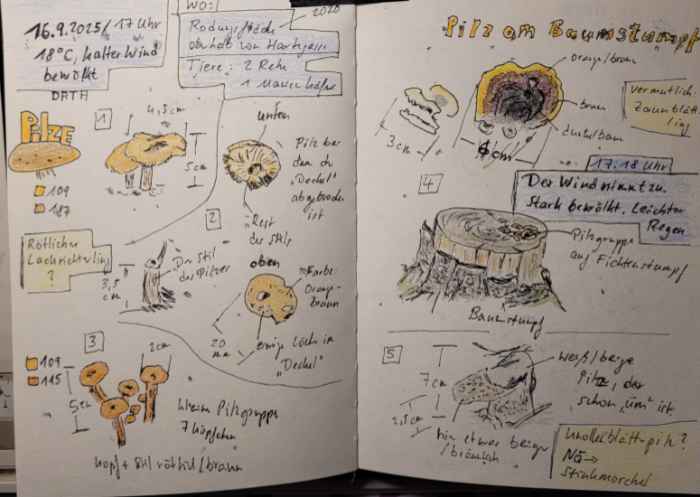 16.9.2025/17 Uhr
18°C, kalter Wind
bewölkt
DATA
WO:
2020
Rodungsfläche
oberhalb von
Tiere: 2 Rehe
1
PILZE
109
187
1
4,5cm
5cm
unten
Pilz bei
dem der
„Deckel"
abgebrochen
ist
Rest
des Stils
2
Rötlicher
Lacktrichterling
?
3,5
cm
Der Stil
des Pilzes
oben
Farbe:
Orange-
Braun
20
mm
einige Löcher im
„Deckel"
3
109
115
2cm
5cm
kleine Pilzgruppe
7 Köpfchen
Kopf + Stil rötlich/braun
Pilz am Baumstumpf
orange/braun
braun
dunkelbraun
3cm
6cm
vermutlich
Zaunblätt-
ling
17:18 Uhr
Der Wind nimmt zu.
Stark bewölkt. Leichter
Regen
4
Pilzgruppe
auf Fichtenstumpf
Baumstumpf
5
7cm
2,5cm
weiß/beige
Pilz, der
schon „um" ist
hin etwas beige
/bräunlich
Knollenblätterpilz?
Nö →
Stinkmorchel